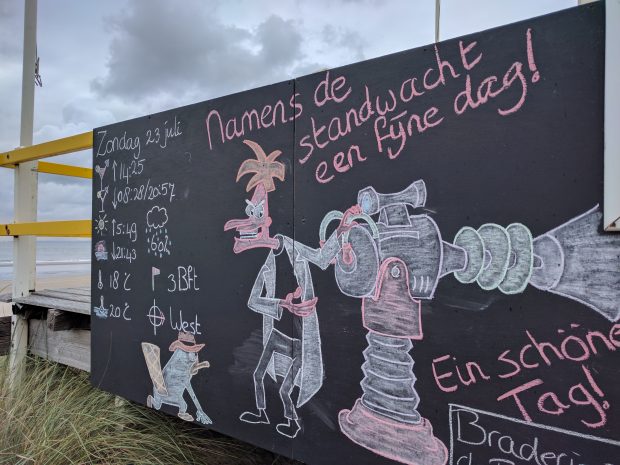 Zondag 23 juli
↑14:25
↓08:28/20:57
↑5:49
↓21:43
18°C
3Bft
20°C
West
Namens de
standwacht
een fÿne dag!
Ein schöne
Tag!
Braderi